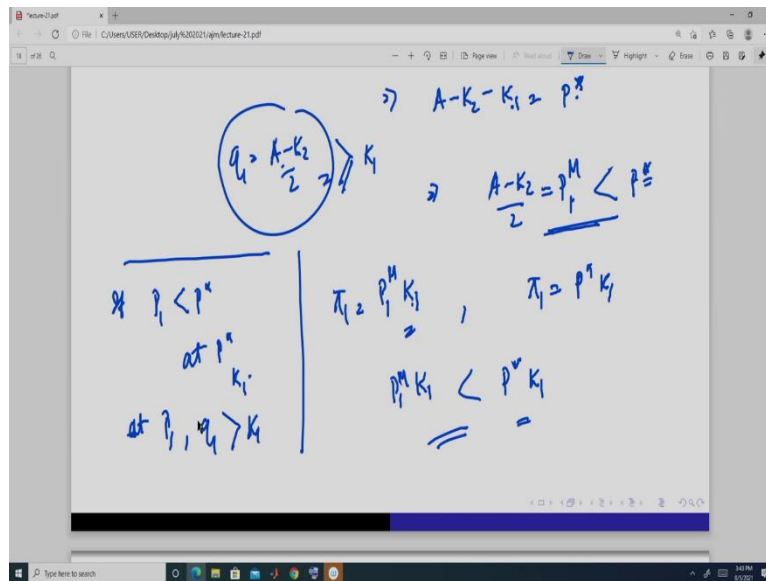 *lecture-21.pdf
File | C:/Users/USER/Desktop/july%202021/ajm/lecture-21.pdf
18 of 26
Page view
Read aloud
Draw
Highlight
Erase
⇒ A-K₂-K₁ = P*
q₁ = A-K₂/2 ≥ K₁
⇒ A-K₂/2 = P₁ᴹ < P*
If P₁ < P*
at P*
K₁.
at P₁, q₁ > K₁
π₁ = P₁ᴹ K₁, π₁ = P* K₁
P₁ᴹ K₁ < P* K₁
Type here to search
3:43 PM
8/5/2021